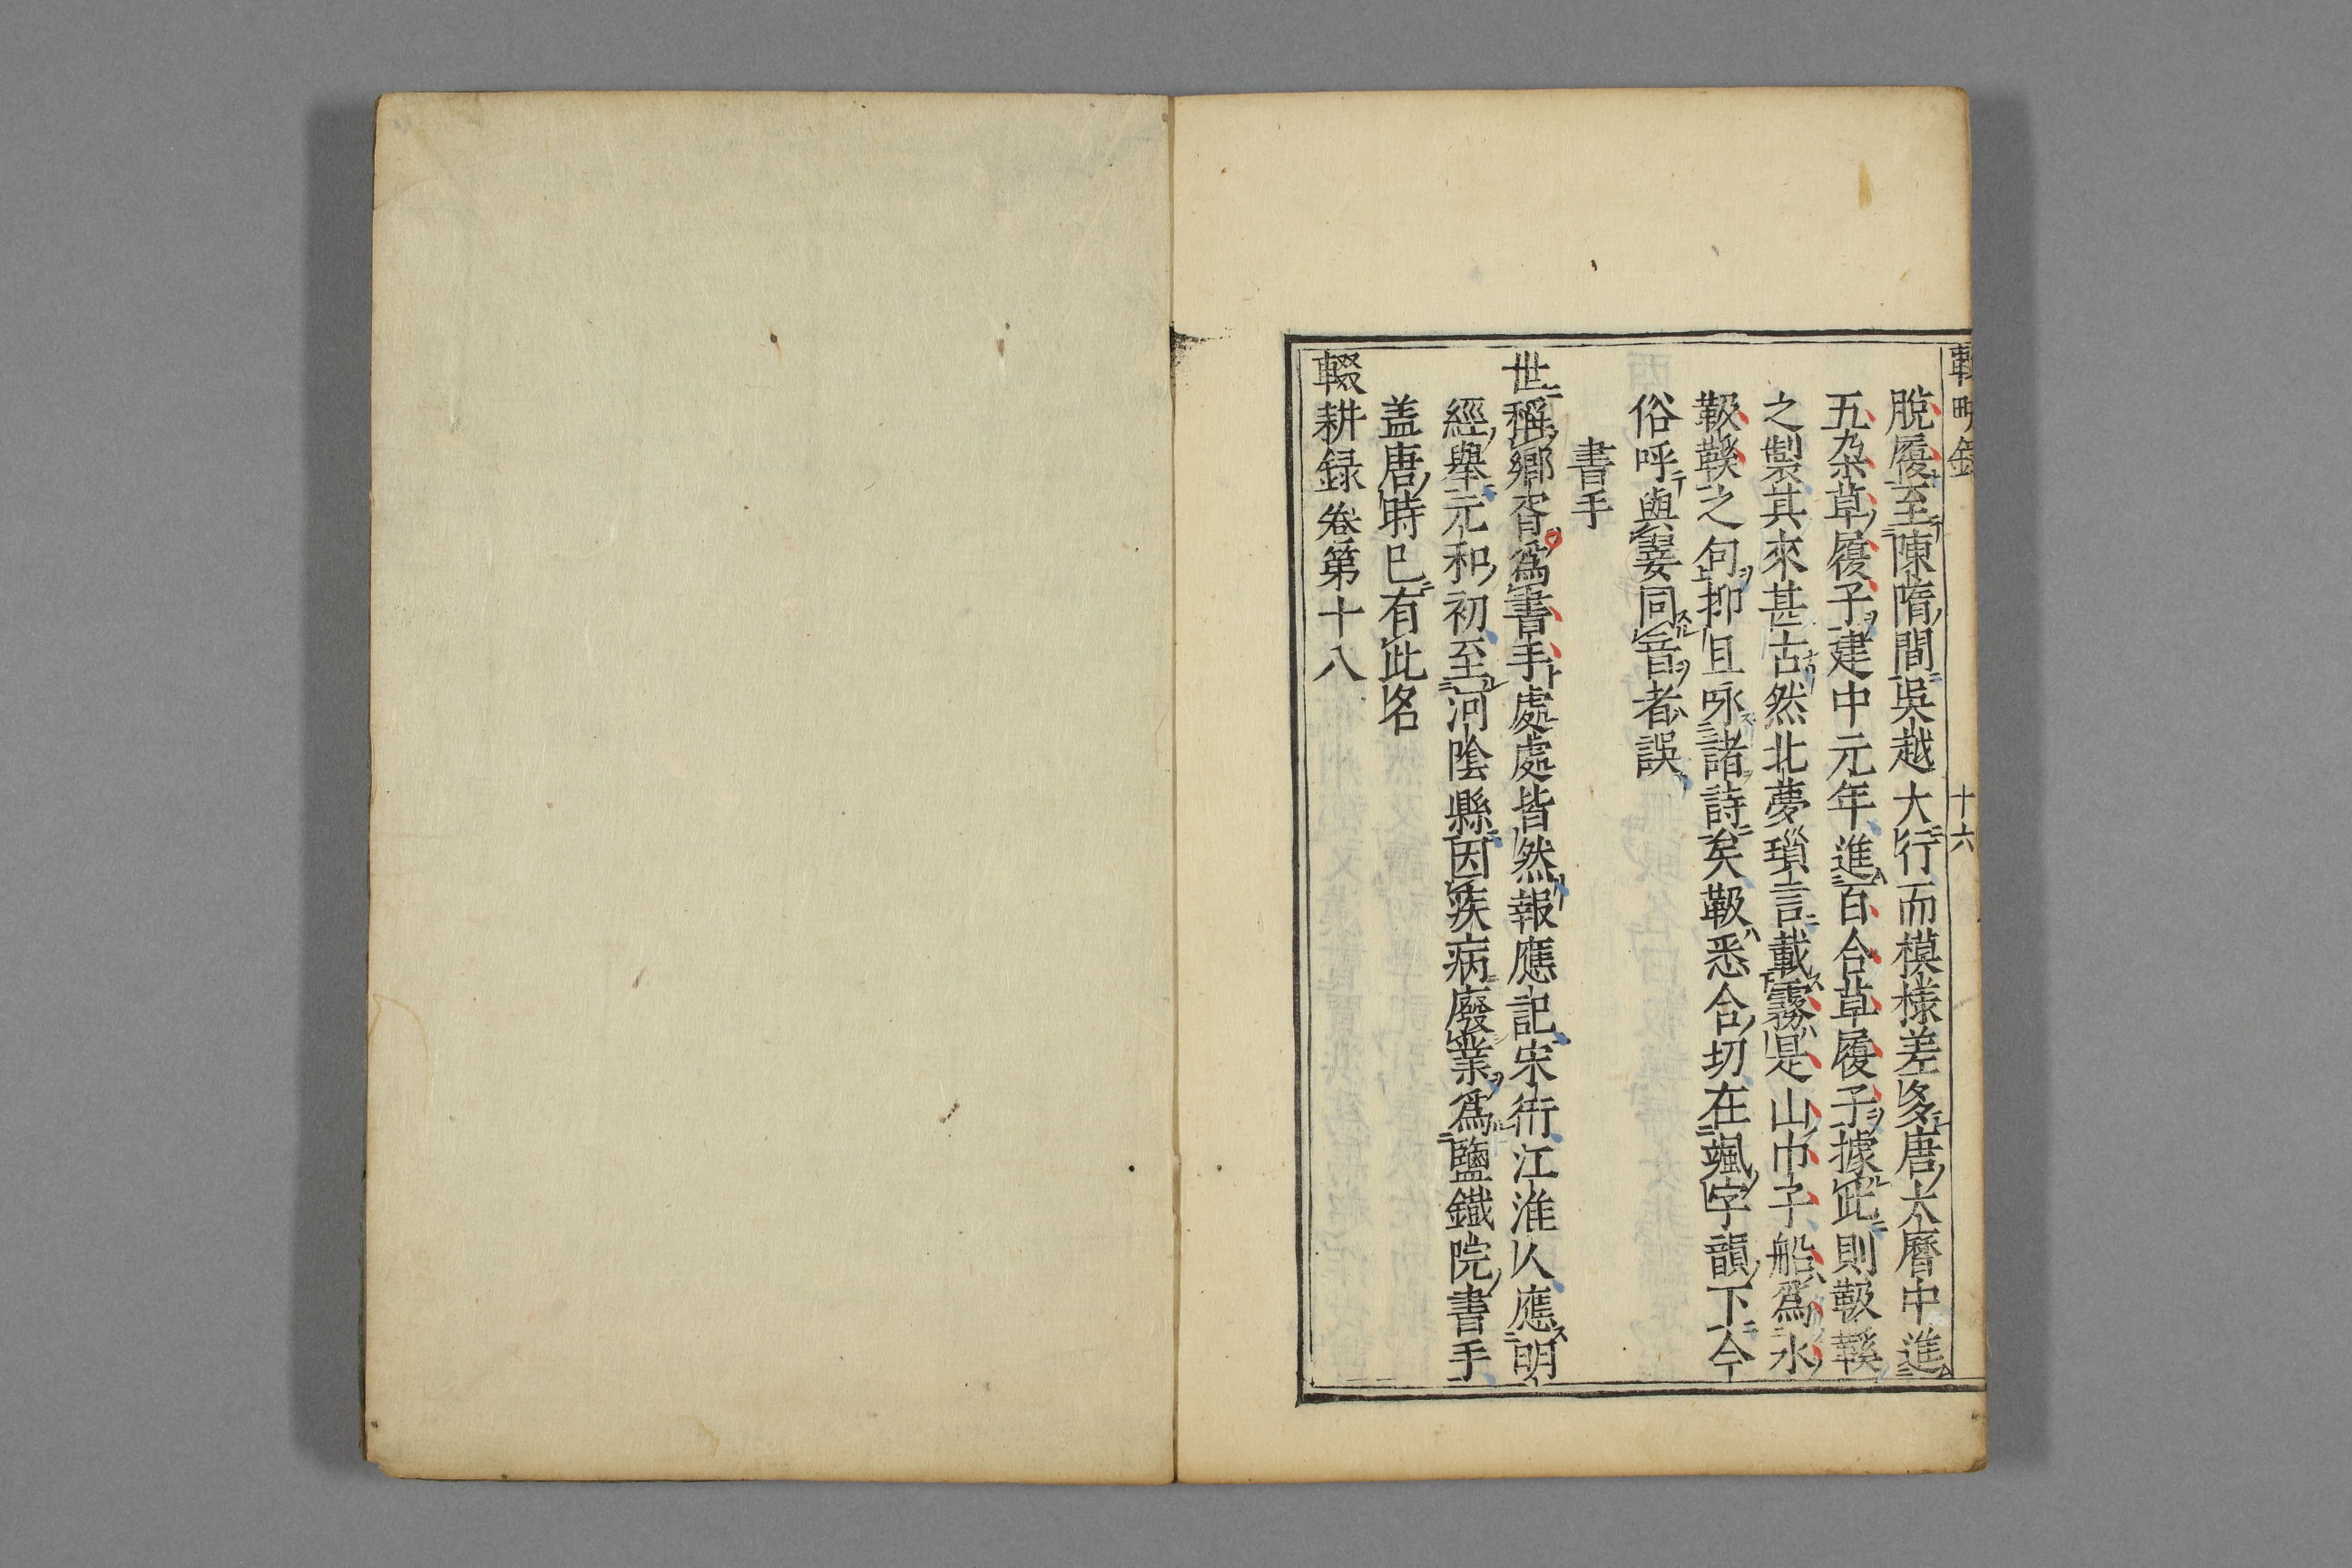 脫履至陳隋間吳越大行而模樣差多唐大曆中進
五朶草履子建中元年進百合草履子據此則靸鞵
之製其來甚古然北夢瑣言載霧是山巾子船爲水
靸鞵之句抑且咏諸詩矣靸悉合切在颯字韻下今
俗呼與翣同音者誤
書手
世稱鄉胥爲書手處處皆然報應記宋衎江淮人應明
經舉元和初至河陰縣因疾病廢業爲鹽鐵院書手
盖唐時已有此名
輟耕録卷第十八
十六